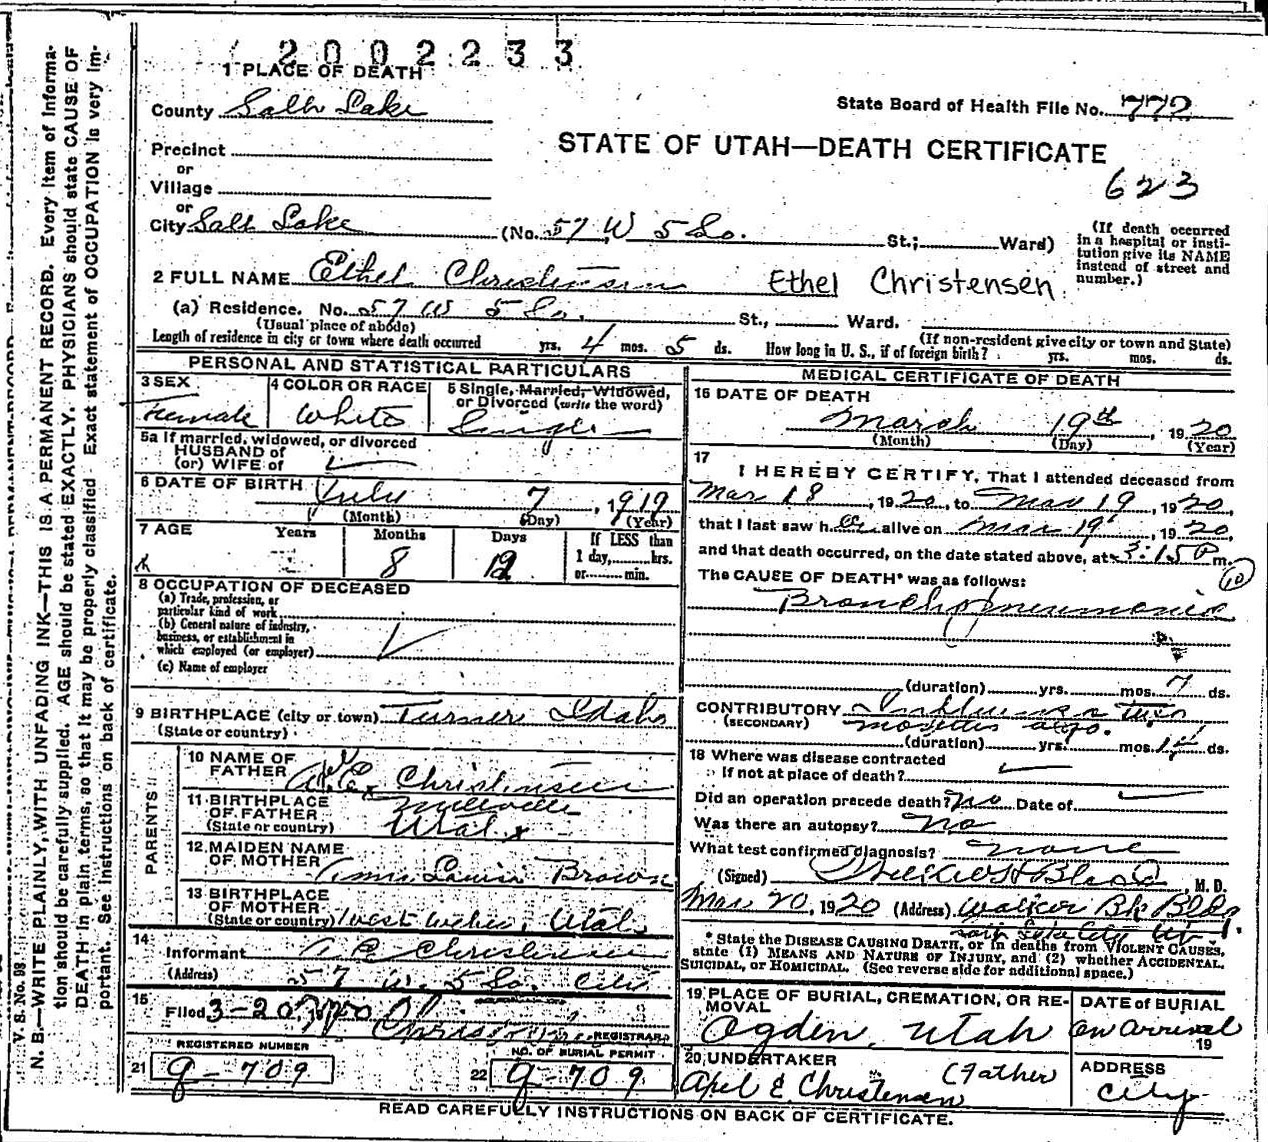 2002233
1 PLACE OF DEATH
County Salt Lake
State Board of Health File No. 772
Precinct
or
STATE OF UTAH—DEATH CERTIFICATE
Village
623
or
City Salt Lake (No. 57 W 5 So. St.; Ward)
(If death occurred in a hospital or insti-
tution give its NAME
instead of street and
number.)
2 FULL NAME Ethel Christensen Ethel Christensen
(a) Residence. No. 57 W 5 So. St., Ward.
(Usual place of abode)
(If non-resident give city or town and State)
Length of residence in city or town where death occurred yrs. 4 mos. 5 ds. How long in U. S., if of foreign birth? yrs. mos. ds.
PERSONAL AND STATISTICAL PARTICULARS
3 SEX
Female
4 COLOR OR RACE
White
5 Single, Married, Widowed,
or Divorced (write the word)
Single
5a If married, widowed, or divorced
HUSBAND of
(or) WIFE of
6 DATE OF BIRTH July 7, 1919
(Month) (Day) (Year)
7 AGE Years Months Days If LESS than
1 day, hrs.
or min.
8 12
8 OCCUPATION OF DECEASED
(a) Trade, profession, or
particular kind of work
(b) General nature of industry,
business, or establishment in
which employed (or employer)
(c) Name of employer
9 BIRTHPLACE (city or town) Turner Idaho
(State or country)
PARENTS
10 NAME OF
FATHER A. E. Christensen
11 BIRTHPLACE
OF FATHER Millville
(State or country) Utah
12 MAIDEN NAME
OF MOTHER Louisa Brown
13 BIRTHPLACE
OF MOTHER
(State or country) West Weber, Utah
14
Informant A E Christensen
(Address) 57 W. 5 So. City
15
Filed 3-20 1920
REGISTRAR
REGISTERED NUMBER
21 g-709
NO. OF BURIAL PERMIT
22 g-709
MEDICAL CERTIFICATE OF DEATH
16 DATE OF DEATH
March 19th, 1920
(Month) (Day) (Year)
17
I HEREBY CERTIFY, That I attended deceased from
Mar 18, 1920, to Mar 19, 1920,
that I last saw her alive on Mar 19, 1920,
and that death occurred, on the date stated above, at 3:15 P m.
The CAUSE OF DEATH* was as follows: 10
Broncho pneumonia
(duration) yrs. mos. 7 ds.
CONTRIBUTORY Influenza two
(SECONDARY) months ago.
(duration) yrs. mos. 14 ds.
18 Where was disease contracted
If not at place of death?
Did an operation precede death? No Date of
Was there an autopsy? No
What test confirmed diagnosis? none
(Signed) M. D.
Mar 20, 1920 (Address) Walker Bk Bldg.
Salt Lake City Ut
* State the DISEASE CAUSING DEATH, or in deaths from VIOLENT CAUSES,
state (1) MEANS AND NATURE OF INJURY, and (2) whether ACCIDENTAL,
SUICIDAL, or HOMICIDAL. (See reverse side for additional space.)
19 PLACE OF BURIAL, CREMATION, OR RE-
MOVAL
Ogden, Utah
DATE of BURIAL
on arrival
19
20 UNDERTAKER
(Father)
Apel E. Christensen
ADDRESS
City
READ CAREFULLY INSTRUCTIONS ON BACK OF CERTIFICATE.
V. S. No. 98
N. B.—WRITE PLAINLY, WITH UNFADING INK—THIS IS A PERMANENT RECORD. Every Item of Informa-
tion should be carefully supplied. AGE should be stated EXACTLY. PHYSICIANS should state CAUSE OF
DEATH in plain terms, so that it may be properly classified. Exact statement of OCCUPATION is very im-
portant. See instructions on back of certificate.